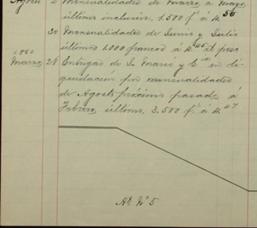 Agosto 2 Mensualidades de Marzo a Mayo
últimos inclusives, 1.500 f. á
30 Mensualidades de Junio y Julio
últimos 1.000 francos á
Marzo 28 Entregas de Sn Marie y Ca en li-
quidacion por mensualidades
de Agosto próximo pasado á
Febrero último, 3.500 f. á
Al Nº 5